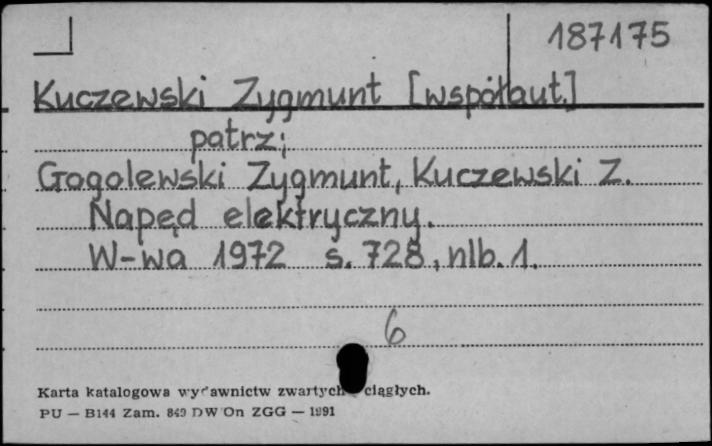 187175
Kuczewski Zygmunt [współaut.]
patrz:
Gogolewski Zygmunt, Kuczewski Z.
Napęd elektryczny.
W-wa 1972 s. 728, nlb. 1.
6
Karta katalogowa wydawnictw zwartych ciągłych.
PU — B144 Zam. 849 DW On ZGG — 1991